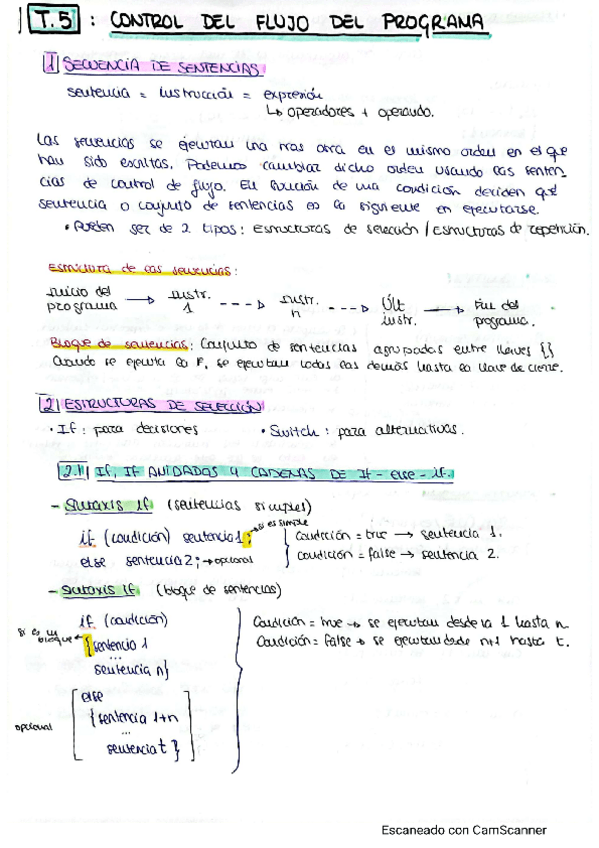 T.5 : CONTROL DEL FLUJO DEL PROGRAMA
1 SECUENCIA DE SENTENCIAS
sentencia = instrucción = expresión
↳ operadores + operando.
Las sentencias se ejecutan una tras otra en el mismo orden en el que
han sido escritas. Podemos cambiar dicho orden usando las senten-
cias de control de flujo. En función de una condición deciden qué
sentencia o conjunto de sentencias es la siguiente en ejecutarse.
• Pueden ser de 2 tipos: Estructuras de selección / Estructuras de repetición.
Estructura de las secuencias:
Inicio del programa → Instr. 1 ---▷ Instr. n ---▷ Últ instr. → Fin del programa.
Bloque de sentencias: Conjunto de sentencias agrupadas entre llaves {}
Cuando se ejecuta la 1ª, se ejecutan todas las demás hasta la llave de cierre.
2 ESTRUCTURAS DE SELECCIÓN
• If: para decisiones • Switch: para alternativas.
2.1 If, IF ANIDADAS Y CADENAS DE If - else - if.
- Sintaxis if (sentencias simples)
if (condición) sentencia1; → si es simple
else sentencia2; → opcional
Condición = true → sentencia 1.
Condición = false → sentencia 2.
- Sintaxis if (bloque de sentencias)
if (condición)
si es un bloque ← {sentencia 1
...
sentencia n}
opcional
else
{sentencia 1+n
...
sentencia t}
Condición = true → se ejecutan desde la 1 hasta n.
Condición = false → se ejecutan desde n+1 hasta t.
Escaneado con CamScanner